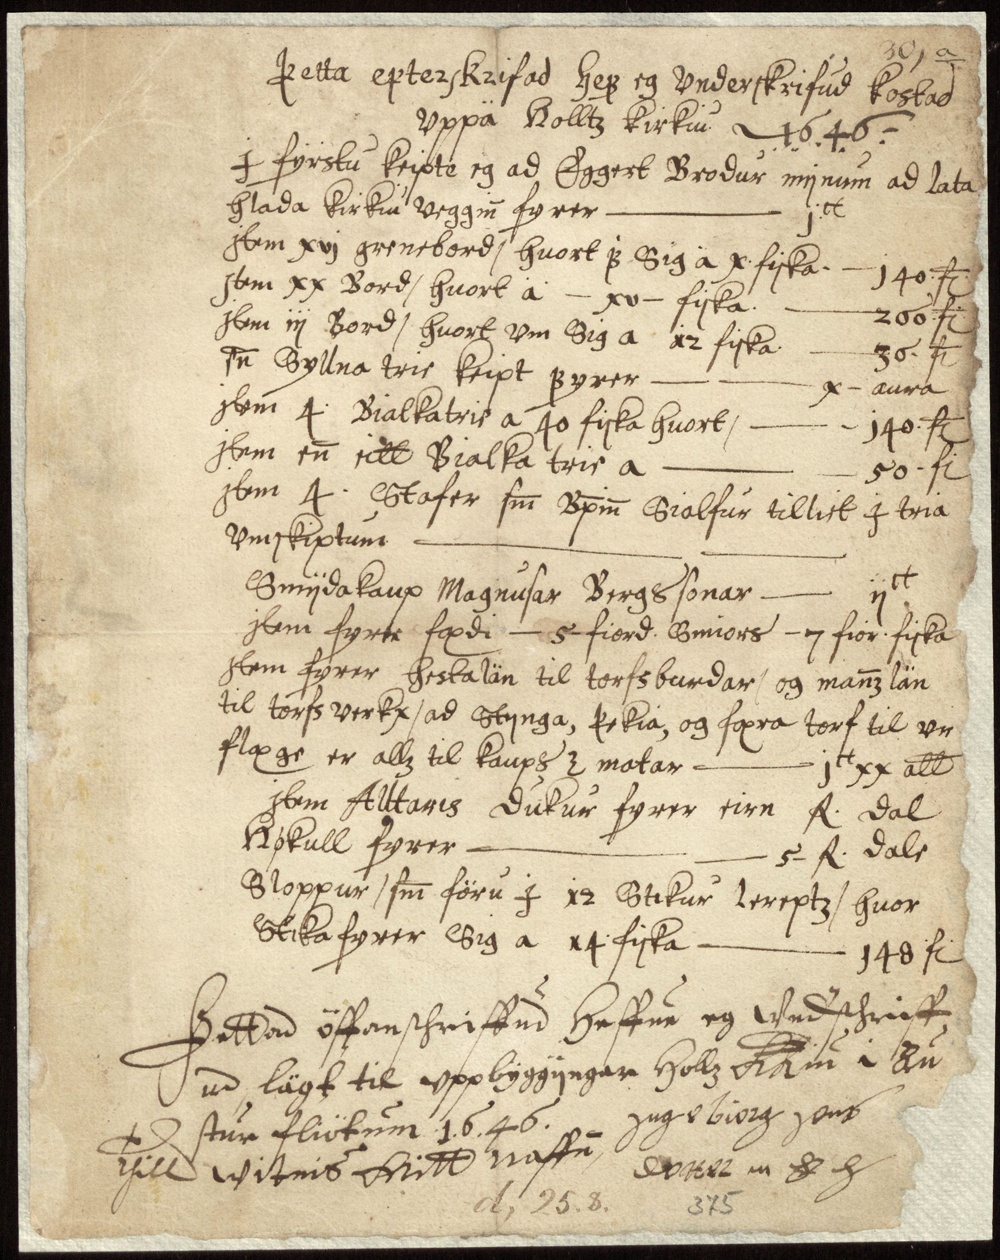 30, a
Þetta epterskrifad hef eg Vnderskrifud kostad
Vppä Holltz kirkiu 1646
J fyrstu keipte eg ad Eggert Brodur mijnum ad lata
hlada kirkiu veggiñ fyrer — j ct
Jtem xvj grenebord / huort fr Sig a x fiska — 140 fi
Jtem xx Bord / huort á — xv — fiska — 200 fi
Jtem iij Bord / huort vm Sig a 12 fiska — 36 fi
eñ Syllna trie keipt fyrer — x — aura
Jtem 4 Bialkatrie a 40 fiska huort / — 140 fi
Jtem eñ eitt Bialka trie a — 50 fi
Jtem 4 Stafer sm̃ Sialfur tilliet J tria
Vmskiptum —
Smijdakaup Magnusar Bergssonar — ij ct
Jtem fyrer fædi — 5 fiord. Smiors — 7 fior. fiska
Jtem fyrer hestalän til torfsburdar / og mañz län
til torfs verkx / ad Stijnga, Þekia, og færa torf til vr
flæge er allz til kaups & matar — 1 ct xx all
Jtem Alltaris dukur fyrer eirn R. dal
Høkull fyrer — 5 R. dale
Sloppur / sm̃ föru J 12 Stikur lereptz / huor
Stika fyrer Sig a 14 fiska — 148 fi
Þettad öffanschriffud heffue eg Vndschriff
ud lägt til vppbyggijngar Hollz kirkiu i Au
stur fliötum 1646. Jngebiorg Jons
Till witnis mitt naffn, dotter m e h
d, 25.8. 375